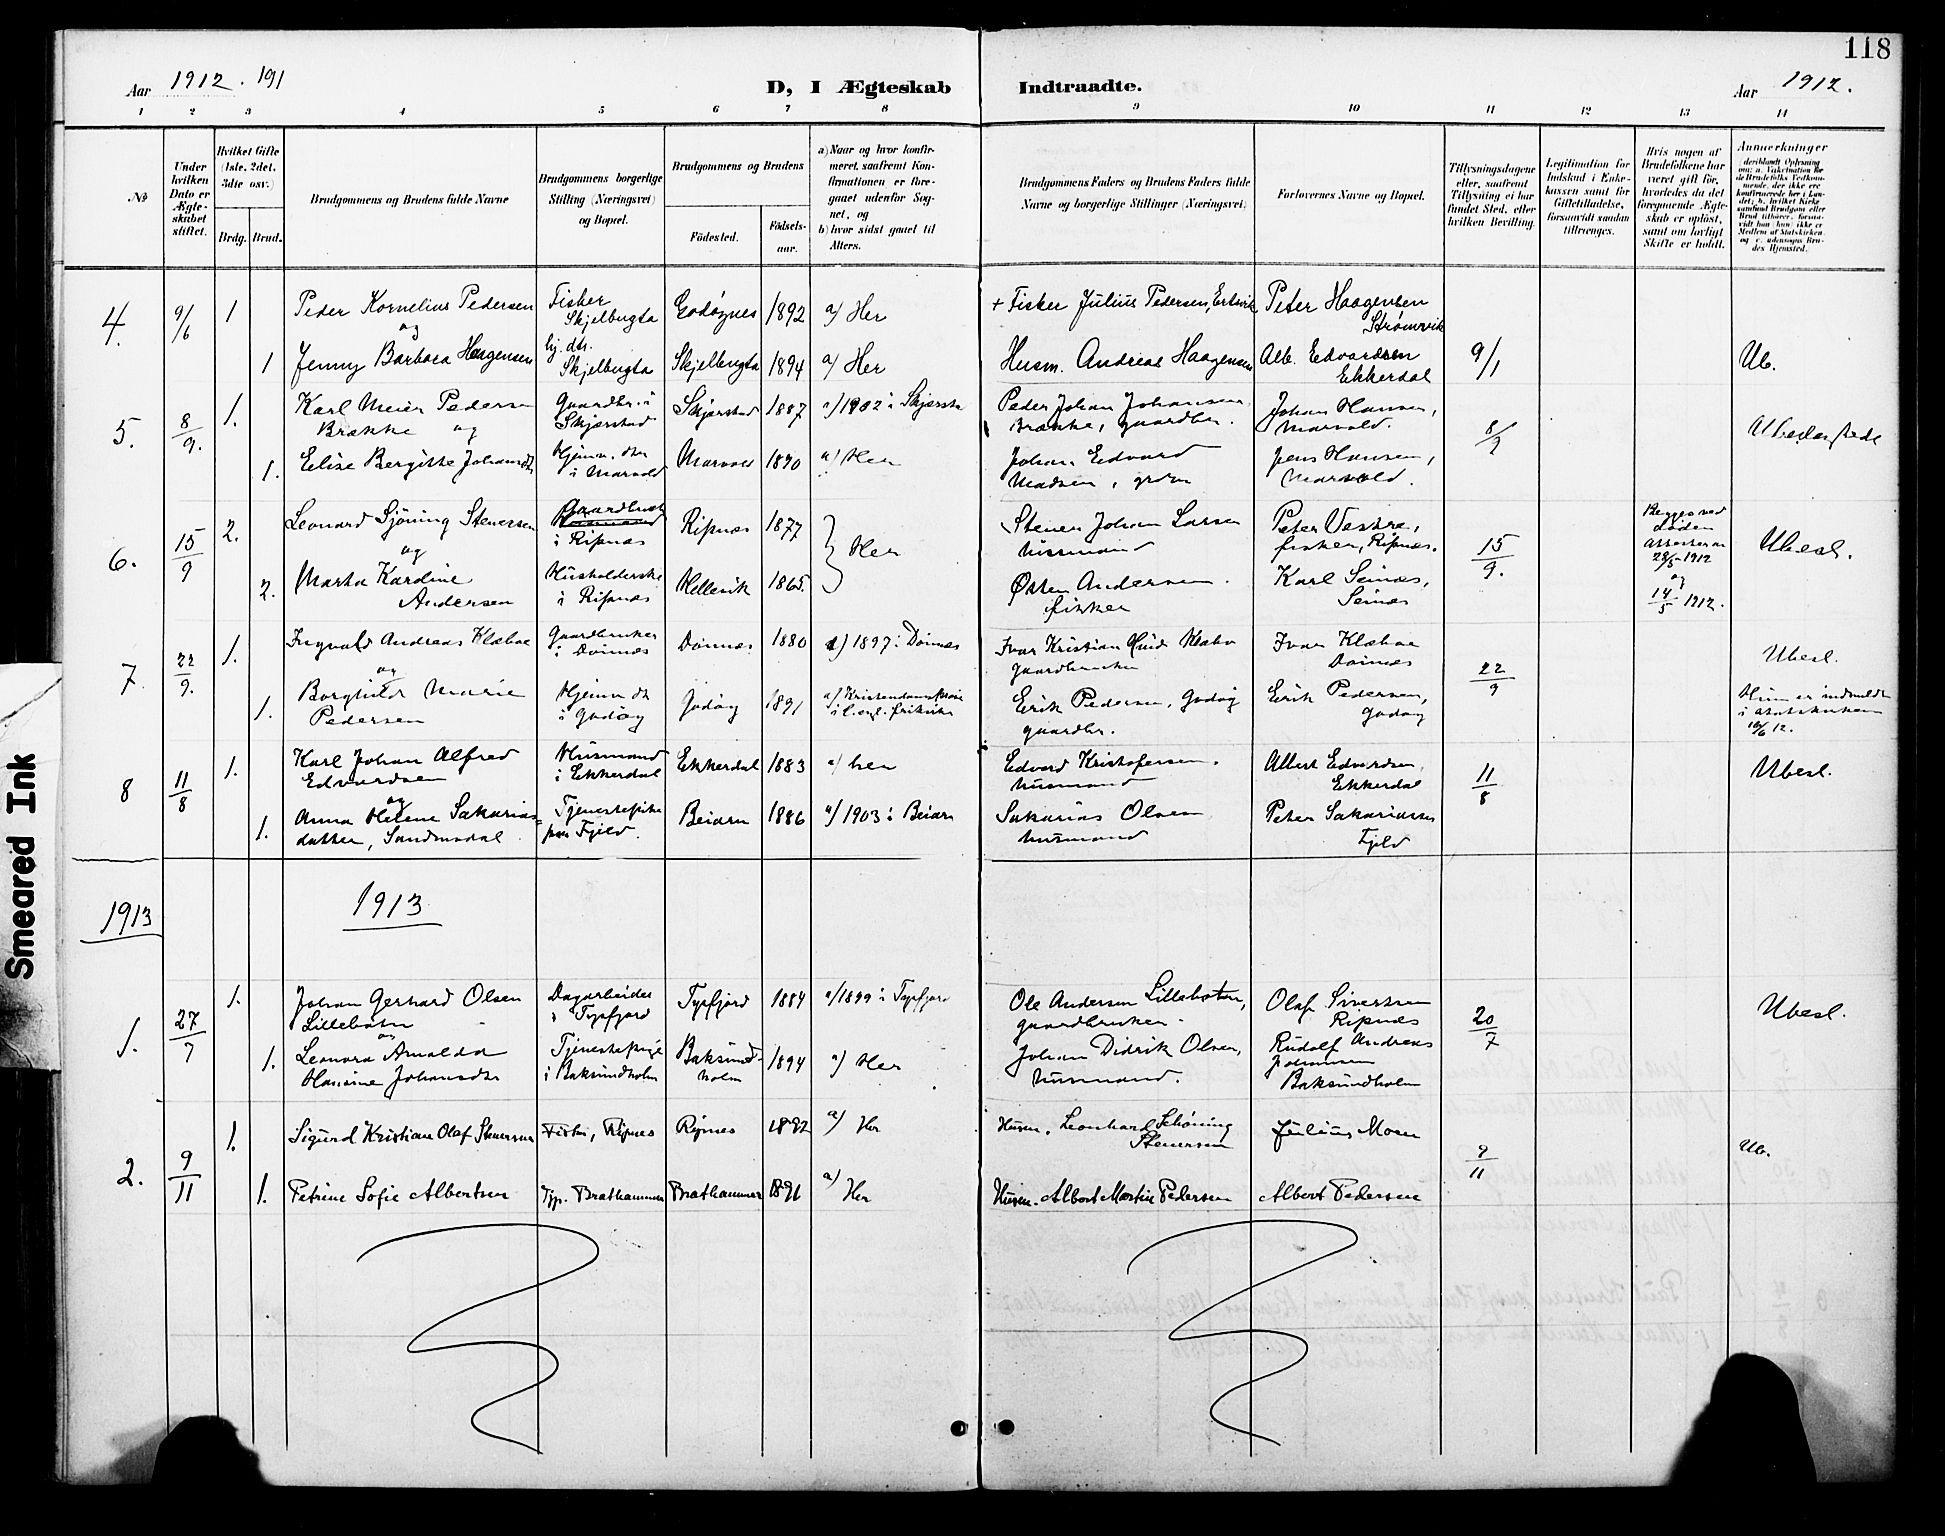 118
Aar 1912. 191
D, I Ægteskab Indtraadte.
Aar 1912.
1 2 3 4 5 6 7 8 9 10 11 12 13 14
No
Under hvilken Dato er Ægteskabet stiftet.
Hvilket Gifte (1ste, 2det, 3die osv.)
Brdg. Brud.
Brudgommens og Brudens fulde Navne
Brudgommens borgerlige Stilling (Næringsvei) og Bopæl.
Brudgommens og Brudens
Fødested.
Fødselsaar.
a) Naar og hvor konfirmeret, saafremt Konfirmationen er foregaaet udenfor Sognet, og
b) hvor sidst gaaet til Alters.
Brudgommens Faders og Brudens Faders fulde Navne og borgerlige Stillinger (Næringsvei)
Forlovernes Navne og Bopæl.
Tillysningsdagene eller, saafremt Tillysning ei har fundet Sted, efter hvilken Bevilling.
Legitimation for Indskud i Enkekassen samt for Giftetilladelse, forsaavidt saadan tiltrænges.
Hvis nogen af Brudefolkene har været gift før, hvorledes da det foregaaende Ægteskab er opløst, samt om lovligt Skifte er holdt.
Anmærkninger
4. 9/6 1 Peder Kornelius Pedersen Fisker Skjelbugta Godøynes 1892 a) Her + Fisker Julius Pedersen, Ertsvik Peter Haagensen Strømsvik
og
1 Jenny Barbara Haagensen hj. dtr. Skjelbugta Skjelbugta 1894 a) Her Husm. Andreas Haagensen Alb. Edvardsen Ekkerdal 9/1 Ub.
5. 8/9. 1. Karl Meier Pedersen Brække og Gaardbr. i Skjærstad Skjærstad 1887 a) 1902 i Skjærsta Peder Johan Johansen Brække, gaardbr. Johan Hansen, Marvold. 8/9
1. Elise Bergitte Johansdtr Hjemm. dtr i Marvold Marvold 1890 a) Her Johan Edvard Madsen, grdbr Jens Hansen, Marvold.
6. 15/9 2. Leonard Sjöning Stenersen Gaardbruk i Ripnæs Ripnæs 1877 Her Stener Johan Larsen husmand Peter Vestre, fisker, Ripnæs. 15/9. Begges ved døden 28/5 1912 og 14/5 1912. Ubesl.
og
2. Marta Kardine Andersen Husholderske i Ripnæs Kellevik 1865. Østen Andersen. fisker Karl Seinæs, Seinæs
7. 22/9. 1. Ingvald Andreas Klæboe Gaardbruker i Döinnæs 1880 a) 1897 i Ivar Kristian Klæbo gaardbruker Ivar Klæboe 22/9 Ubesl.
og
1. Borghild Marie Pedersen Hjemm dtr i Godöy Godöy 1891 Erik Pedersen, Godöy gaardbr. Erik Pedersen, Godöy Hun er indmeldt i statskirken 12.
8 11/8 1. Karl Johan Alfred Edvardsen Husmand i Ekkerdal Ekkerdal 1883 a) her Edvard Kristofersen. husmand Albert Edvardsen Ekkerdal 11/8 Ubesl.
og
1. Anna Helene Sakariasdatter, Sandmodal Tjenestepike paa Fjeld. Beiarn 1886 a) 1903 i Beiarn Sakarias Olsen husmand Peter Sakariassen Fjeld
1913 1913
1. 27/7 1. Johan Gerhard Olsen Lillebotn Dagarbeider i Tysfjord Tysfjord 1884 a) 1899 i Tysfjord Ole Andersen Lillebotn, gaardbruker. Olaf Sivertsen Ripnæs 20/7 Ubesl.
og
1. Leonora Arnolda Hansine Johansdtr Tjenestepige i Baksundholm Baksundholm 1894 a) Her Johan Didrik Olsen, husmand. Rudolf Andreas Johansen Baksundholm
2. 9/11 1. Sigurd Kristian Olaf Stenersen Fisker, Ripnes Ripnes 1892 a) Her Husm. Leonhard Schöning Stenersen Julius Moen 9/11 Ub.
1. Petrine Sofie Albertsen Brathammer Brathammer 1891 a) Her Husm. Albert Martin Pedersen Albert Pedersen
Smeared Ink